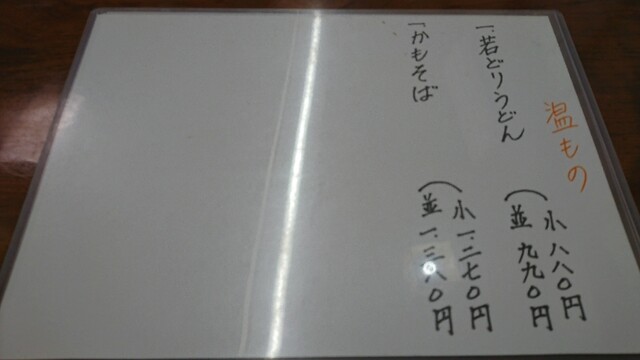 温もの
一.若どりうどん
小 八八〇円
並 九九〇円
一かもそば
小 一.二七〇円
並 一.三八〇円